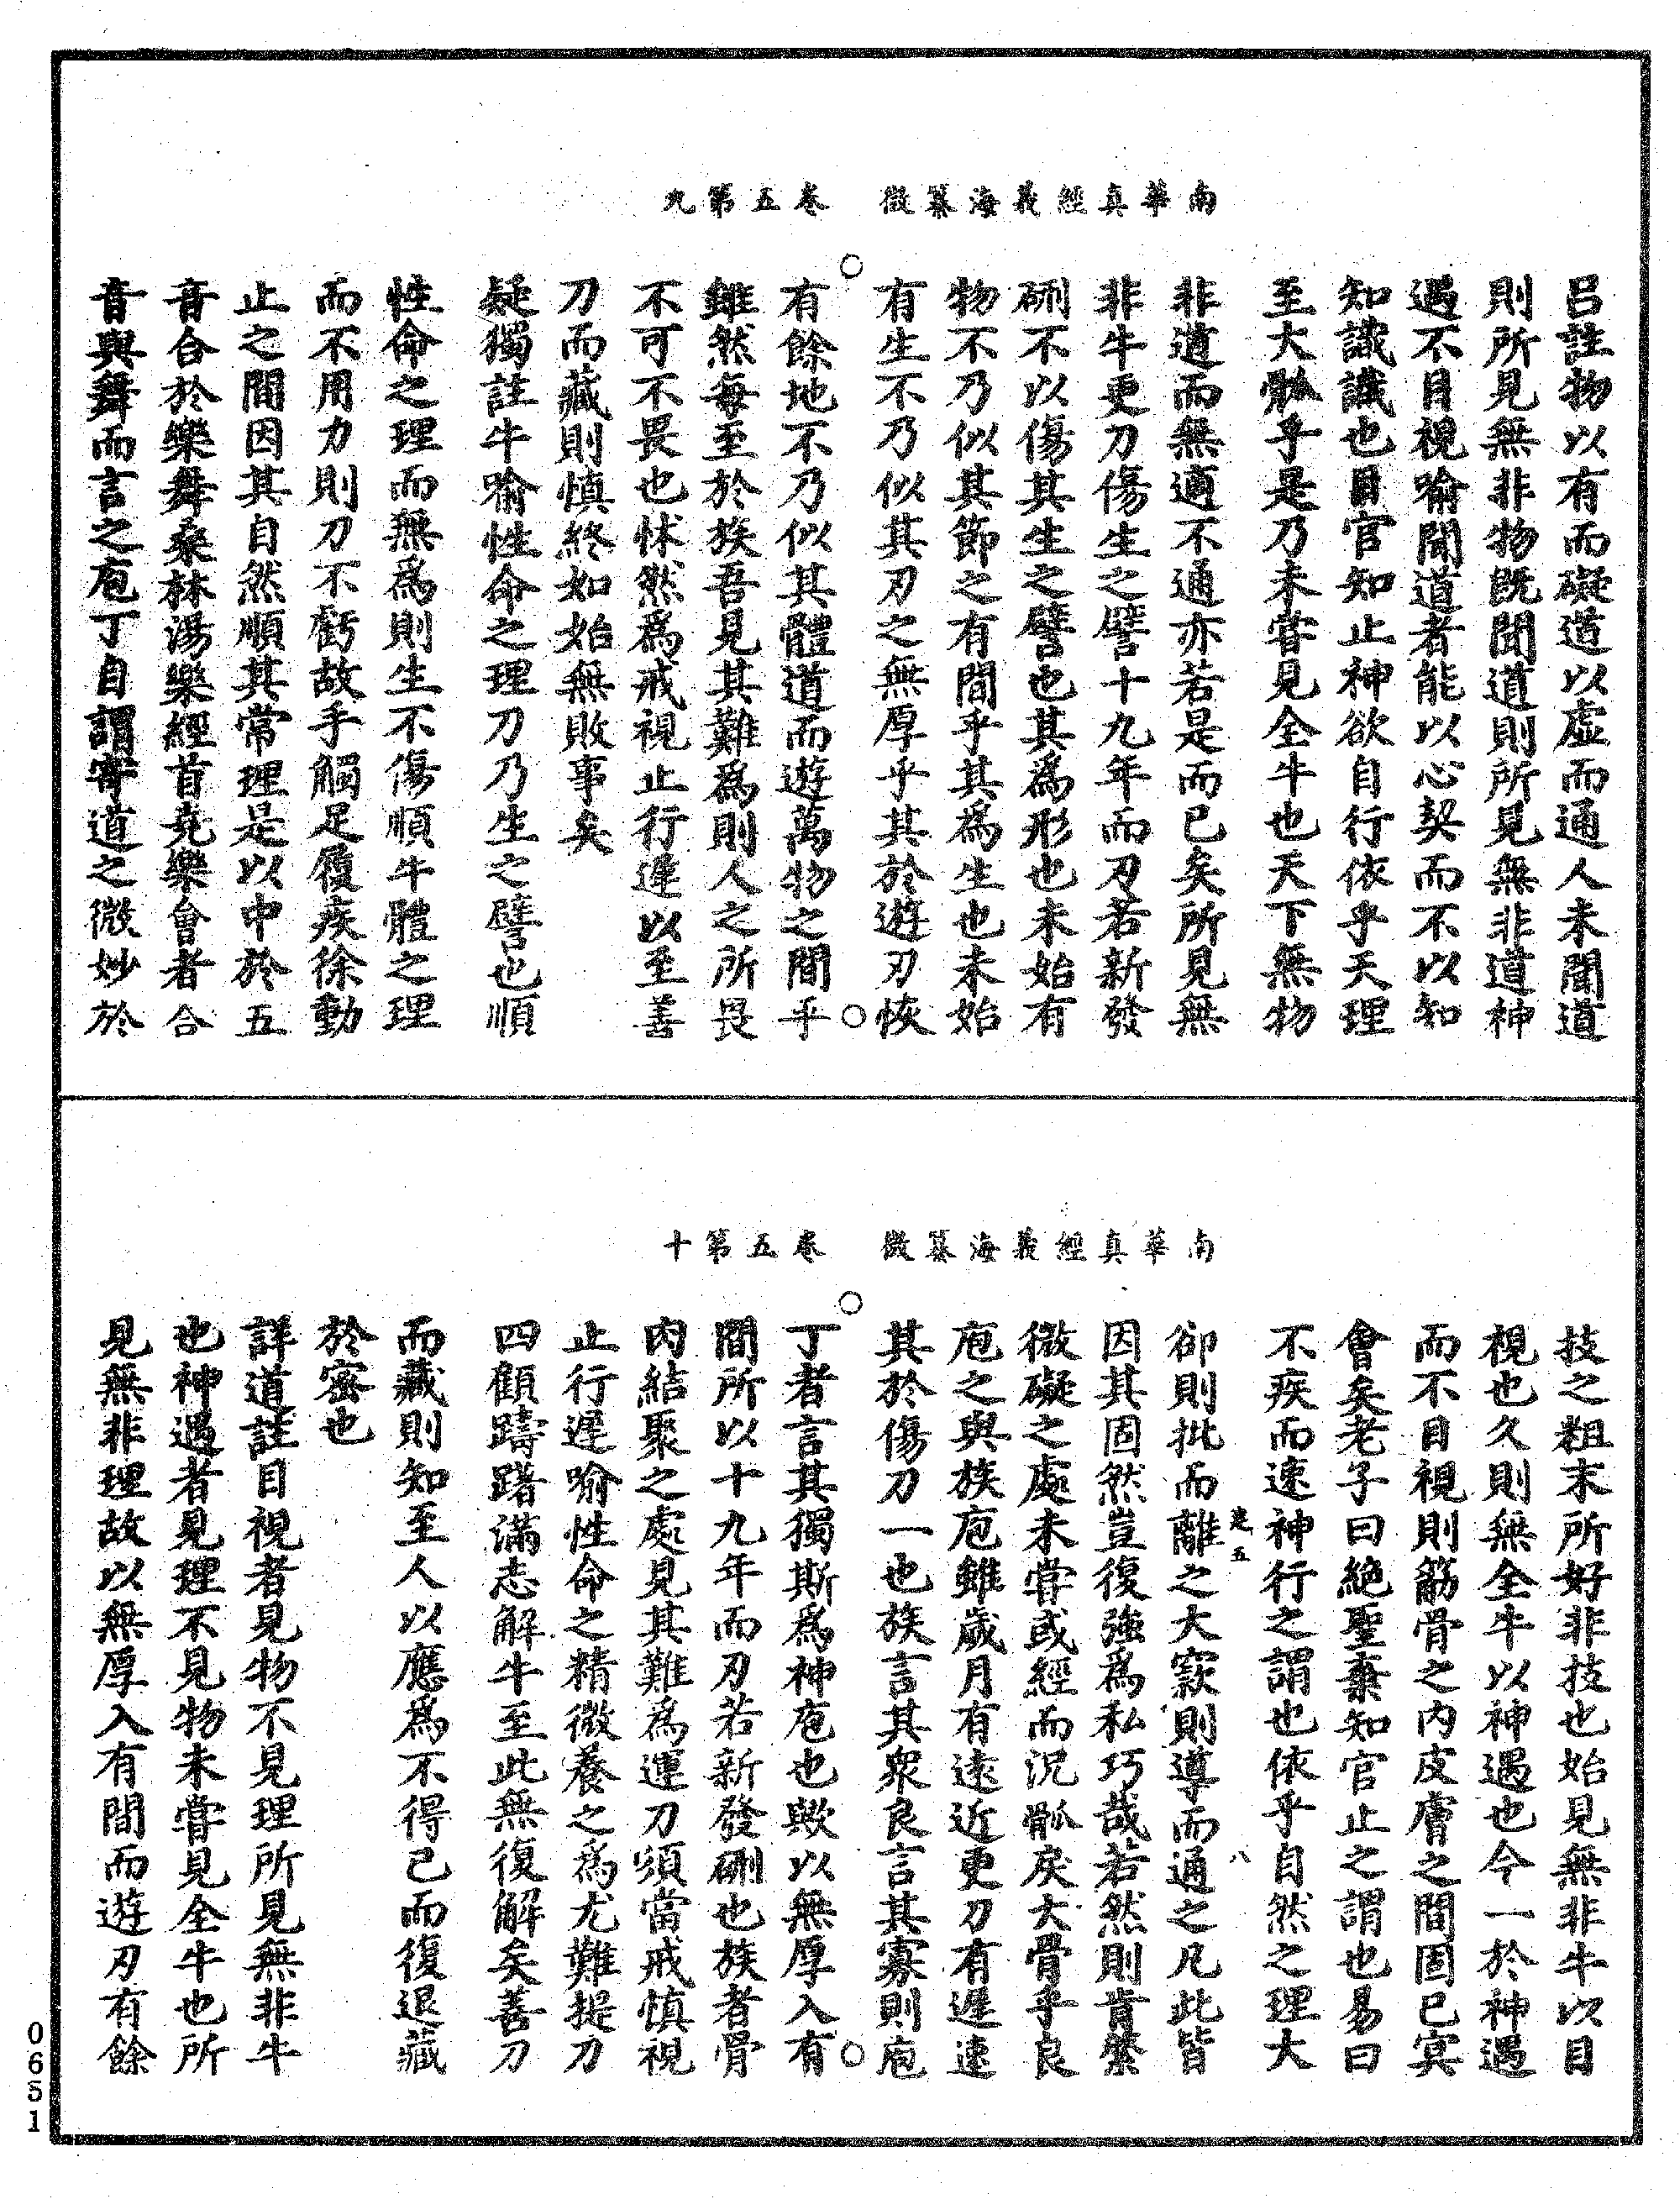 南華真經義海纂微　卷五第九
呂註物以有而礙道以虛而通人未聞道
則所見無非物既聞道則所見無非道神
遇不目視喻聞道者能以心契而不以知
知識識也目官知止神欲自行依乎天理
至大軱乎是乃未甞見全牛也天下無物
非道而無適不通亦若是而已矣所見無
非牛更刀傷生之譬十九年而刃若新發
硎不以傷其生之譬也其為形也未始有
物不乃似其節之有間乎其為生也未始
有生不乃似其刃之無厚乎其於遊刃恢
有餘地不乃似其體道而遊萬物之間乎
雖然每至於族吾見其難為則人之所畏
不可不畏也怵然為戒視止行遲以至善
刀而藏則慎終如始無敗事矣
疑獨註牛喻性命之理刀乃生之譬也順
性命之理而無為則生不傷順牛體之理
而不用力則刀不虧故手觸足履疾徐動
止之間因其自然順其常理是以中於五
音合於樂舞桑林湯樂經首堯樂會者合
音與舞而言之庖丁自謂寄道之微妙於
南華真經義海纂微　卷五第十
技之粗末所好非技也始見無非牛以目
視也久則無全牛以神遇也今一於神遇
而不目視則筋骨之內皮膚之間固已冥
會矣老子曰絕聖棄知官止之謂也易曰
不疾而速神行之謂也依乎自然之理大
建五　八
郤則批而離之大窾則導而通之凡此皆
因其固然豈復強為私巧哉若然則肯綮
微礙之處未甞或經而況軱戾大骨乎良
庖之與族庖雖歲月有遠近更刀有遲速
其於傷刀一也族言其衆良言其寡則庖
丁者言其獨斯為神庖也歟以無厚入有
間所以十九年而刃若新發硎也族者骨
肉結聚之處見其難為運刀須當戒慎視
止行遲喻性命之精微養之為尤難提刀
四顧躊躇滿志解牛至此無復解矣善刀
而藏則知至人以應為不得已而復退藏
於密也
詳道註目視者見物不見理所見無非牛
也神遇者見理不見物未甞見全牛也所
見無非理故以無厚入有間而遊刃有餘
06S1